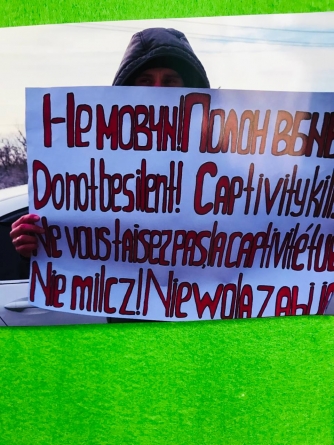 Не мовчи! Полон вбив
Do not be silent! Captivity kill
Ne vous taisez pas, la captivité tue
Nie milcz! Niewola zabij